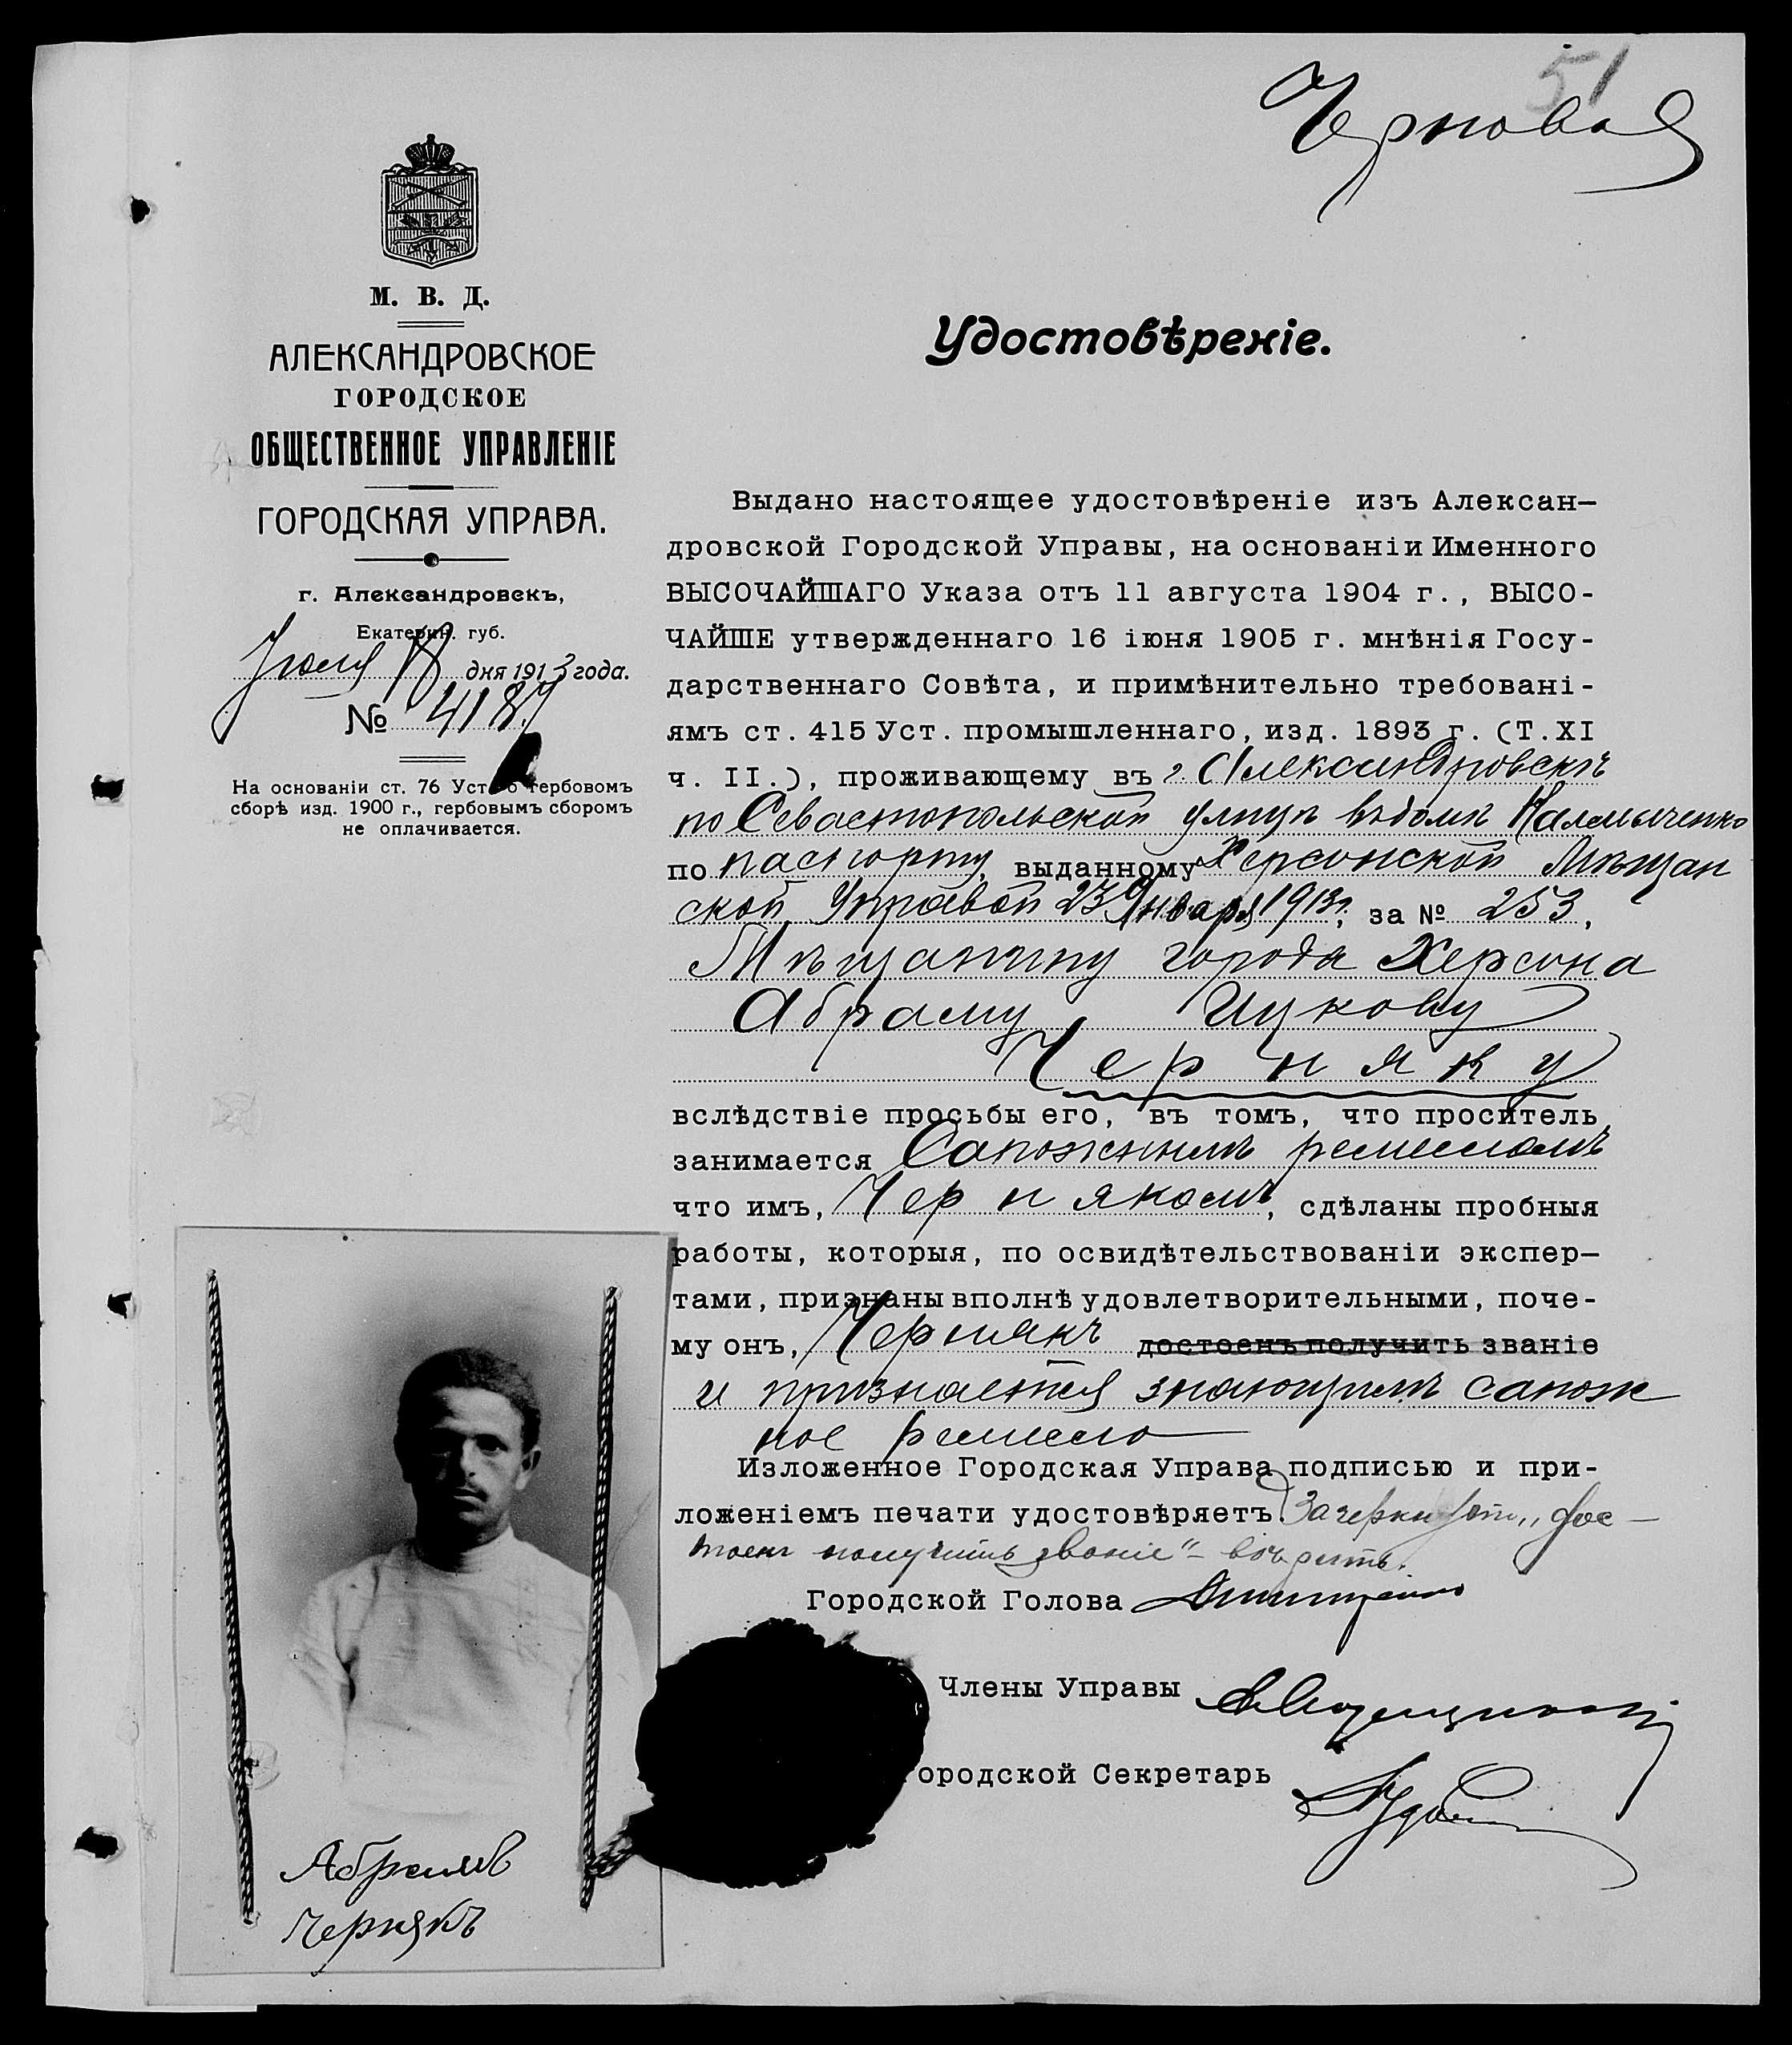 51
Черновая
М. В. Д.
АЛЕКСАНДРОВСКОЕ
ГОРОДСКОЕ
ОБЩЕСТВЕННОЕ УПРАВЛЕНІЕ
ГОРОДСКАЯ УПРАВА.
г. Александровскъ,
Екатерин. губ.
Іюля 18 дня 1913 года.
№ 4187
На основаніи ст. 76 Уст. о гербовомъ
сборѣ изд. 1900 г., гербовымъ сборомъ
не оплачивается.
Удостовѣреніе.
Выдано настоящее удостовѣреніе изъ Алексан-
дровской Городской Управы, на основаніи Именного
ВЫСОЧАЙШАГО Указа отъ 11 августа 1904 г., ВЫСО-
ЧАЙШЕ утвержденнаго 16 іюня 1905 г. мнѣнія Госу-
дарственнаго Совѣта, и примѣнительно требовані-
ямъ ст. 415 Уст. промышленнаго, изд. 1893 г. (Т. XI
ч. II.), проживающему въ г. Александровскѣ
по Севастопольской улицѣ въ домѣ
по паспорту, выданному Херсонской Мѣщан
ской Управой 23 Января 1913 г. за № 253,
Мѣщанину города Херсона
Абраму Ицкову
Черняку
вслѣдствіе просьбы его, въ томъ, что проситель
занимается Сапожнымъ ремесломъ
что имъ, Чернякомъ, сдѣланы пробныя
работы, которыя, по освидѣтельствованіи экспер-
тами, признаны вполнѣ удовлетворительными, поче-
му онъ, Чернякъ достоенъ получить званіе
и признается знающимъ сапож
ное ремесло
Изложенное Городская Управа подписью и при-
ложеніемъ печати удостовѣряетъ. Зачеркнутое „дос-
тоенъ получить званіе“ - вѣрить.
Городской Голова
Члены Управы
ородской Секретарь
Абрамъ
Чернякъ